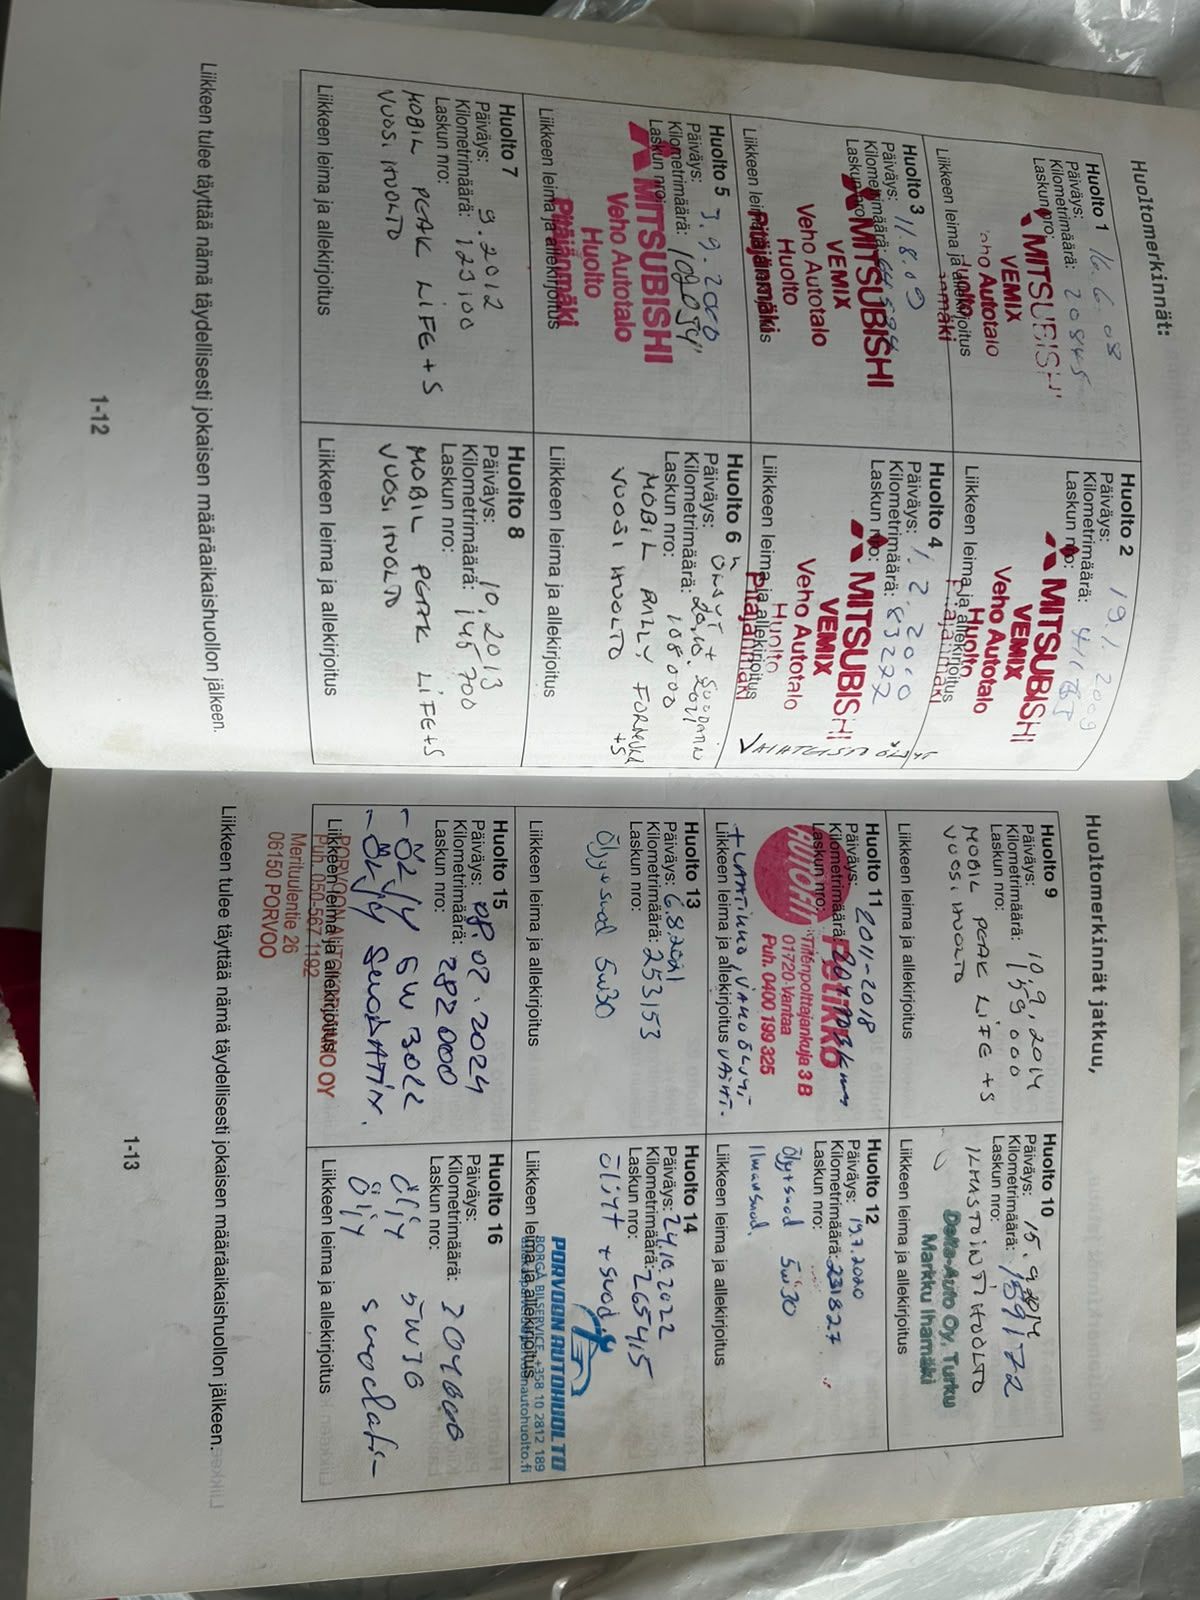 Huoltomerkinnät:
Huolto 1
Päiväys: 16.6.08
Kilometrimäärä: 20845
Laskun nro:
MITSUBISHI
VEMIX
Veho Autotalo
Huolto
Liikkeen leima ja allekirjoitus
Huolto 2
Päiväys: 19.1.2009
Kilometrimäärä:
Laskun nro:
MITSUBISHI
VEMIX
Veho Autotalo
Huolto
Pitäjänmäki
Liikkeen leima ja allekirjoitus
Huolto 3
Päiväys: 11.8.09
Kilometrimäärä:
Laskun nro:
MITSUBISHI
VEMIX
Veho Autotalo
Huolto
Pitäjänmäki
Liikkeen leima ja allekirjoitus
Huolto 4
Päiväys: 1.2.2010
Kilometrimäärä: 83272
Laskun nro:
MITSUBISHI
VEMIX
Veho Autotalo
Huolto
Pitäjänmäki
Liikkeen leima ja allekirjoitus
Huolto 5
Päiväys:
Kilometrimäärä:
Laskun nro:
MITSUBISHI
Veho Autotalo
Huolto
Pitäjänmäki
Liikkeen leima ja allekirjoitus
Huolto 6
Päiväys:
Kilometrimäärä: 108000
Laskun nro:
MOBIL
+S
VUOSIHUOLTO
Liikkeen leima ja allekirjoitus
Huolto 7
Päiväys: 9.2012
Kilometrimäärä: 123100
Laskun nro:
MOBIL PEAK LIFE +S
VUOSIHUOLTO
Liikkeen leima ja allekirjoitus
Huolto 8
Päiväys: 10.2013
Kilometrimäärä: 145700
Laskun nro:
MOBIL PEAK LIFE+S
VUOSIHUOLTO
Liikkeen leima ja allekirjoitus
Liikkeen tulee täyttää nämä täydellisesti jokaisen määräaikaishuollon jälkeen.
1-12
Huoltomerkinnät jatkuu,
Huolto 9
Päiväys: 10.9.2014
Kilometrimäärä: 159000
Laskun nro:
MOBIL PEAK LIFE +S
VUOSIHUOLTO
Liikkeen leima ja allekirjoitus
Huolto 10
Päiväys: 15.9.2014
Kilometrimäärä: 159172
Laskun nro:
ILMASTOINTIHUOLTO
Delta-Auto Oy, Turku
Markku Ihamäki
Liikkeen leima ja allekirjoitus
Huolto 11
Päiväys:
Kilometrimäärä:
Laskun nro:
Petikko
Tiilenpolttajankuja 3 B
01720 Vantaa
Puh. 0400 199 325
Liikkeen leima ja allekirjoitus
Huolto 12
Päiväys: 19.7.2020
Kilometrimäärä: 231827
Laskun nro:
Öljy+suod 5w30
Ilmansuod.
Liikkeen leima ja allekirjoitus
Huolto 13
Päiväys: 6.8.2021
Kilometrimäärä: 253153
Laskun nro:
Öljy+suod 5w30
Liikkeen leima ja allekirjoitus
Huolto 14
Päiväys: 24.10.2022
Kilometrimäärä: 265415
Laskun nro:
ÖLJYT + suod
PORVOON AUTOHUOLTO
BORGÅ BILSERVICE, +358 10 2812 189
Liikkeen leima ja allekirjoitus
Huolto 15
Päiväys: 08.02.2024
Kilometrimäärä: 282000
Laskun nro:
- Öljy 5W30LL
- Öljy SUODATIN.
Liikkeen leima ja allekirjoitus
Puh. 050-567 1192
Merituulentie 26
06150 PORVOO
Huolto 16
Päiväys:
Kilometrimäärä:
Laskun nro:
Öljy 5W30
Öljy suodatin
Liikkeen leima ja allekirjoitus
Liikkeen tulee täyttää nämä täydellisesti jokaisen määräaikaishuollon jälkeen.
1-13